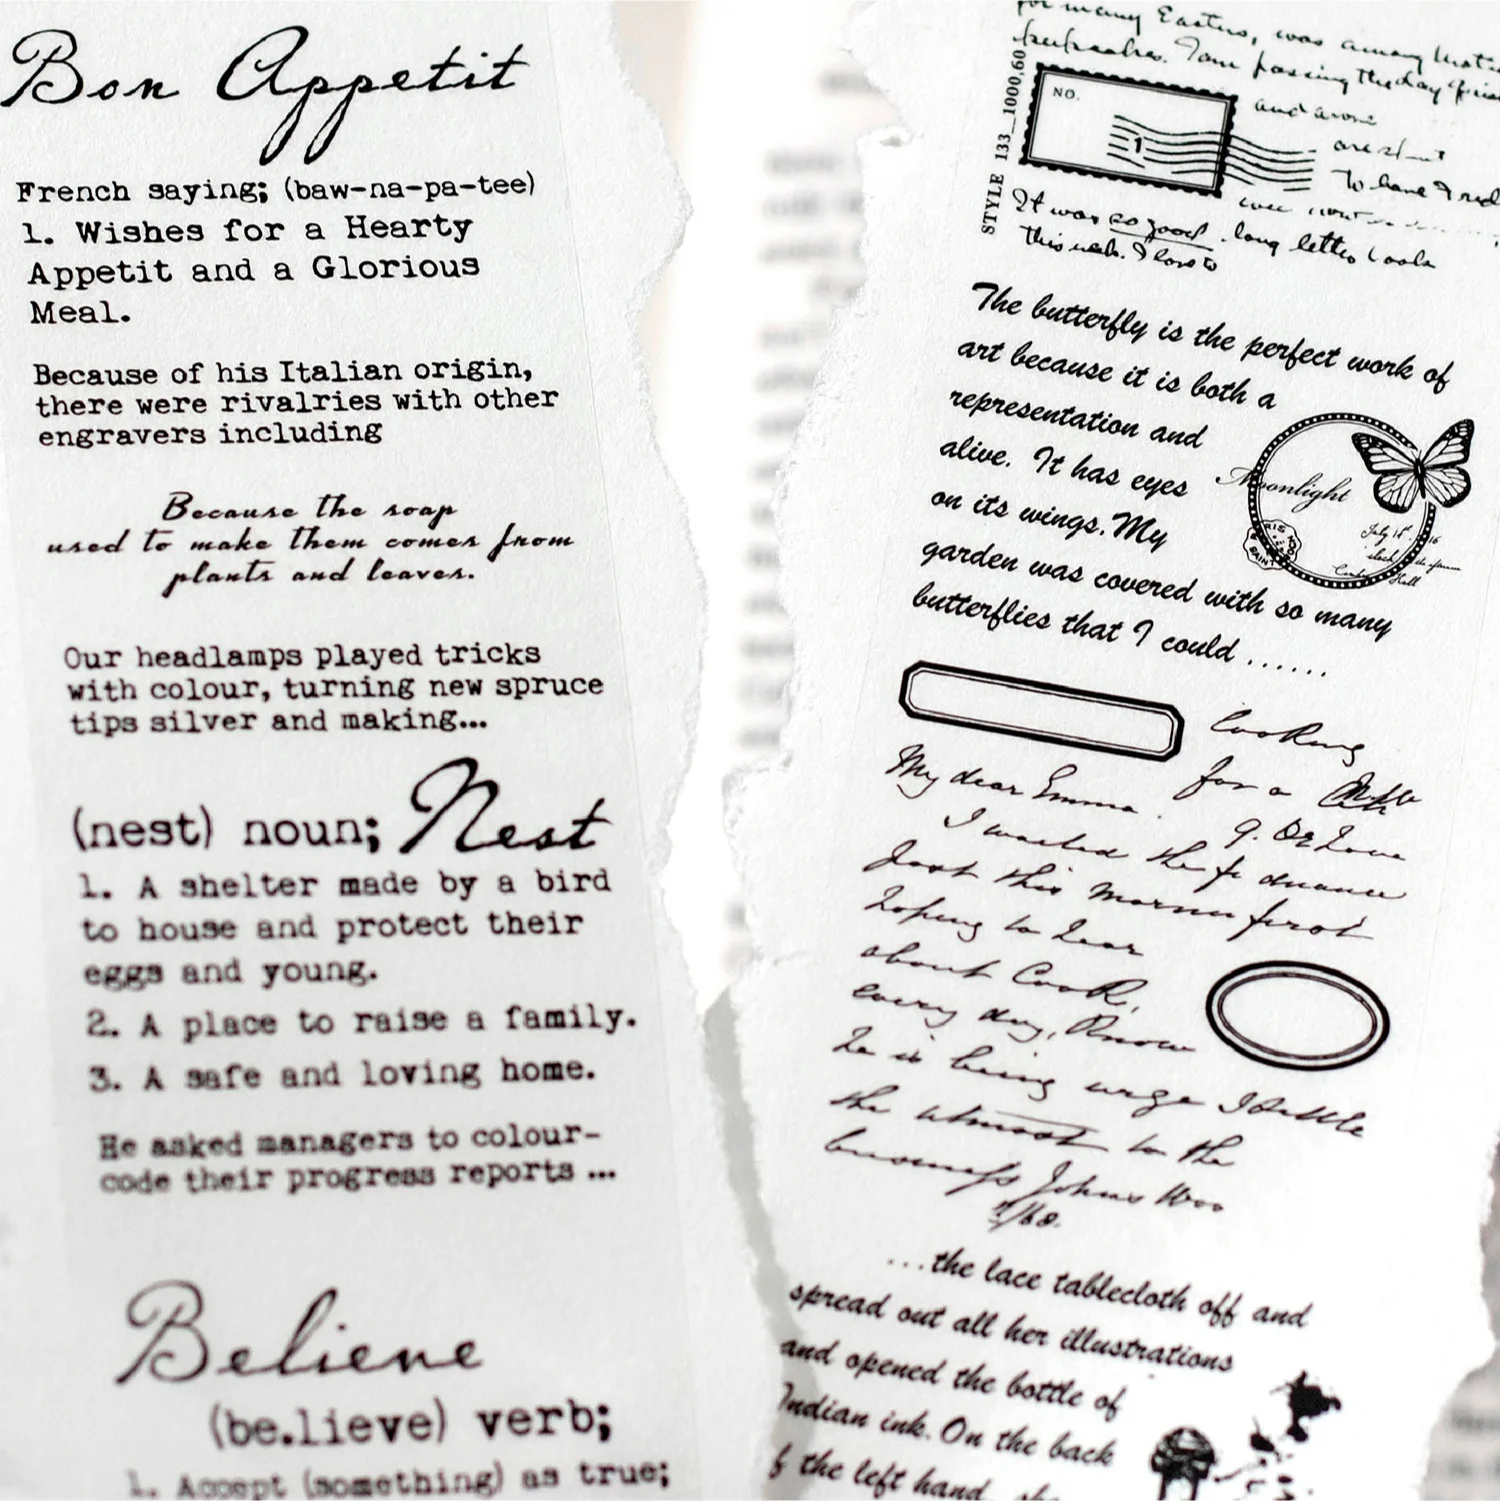 Bon Appetit
French saying; (baw-na-pa-tee)
1. Wishes for a Hearty
Appetit and a Glorious
Meal.
Because of his Italian origin,
there were rivalries with other
engravers including
Because the soap
used to make them comes from
plants and leaves.
Our headlamps played tricks
with colour, turning new spruce
tips silver and making...
(nest) noun; Nest
1. A shelter made by a bird
to house and protect their
eggs and young.
2. A place to raise a family.
3. A safe and loving home.
He asked managers to colour-
code their progress reports ...
Believe
(be.lieve) verb;
1. Accept (something) as true;
for many Easters, was among
I am passing the day
STYLE 133__1000,60
NO.
1
and
To have I
It was so good. long letter
this week. I love to
The butterfly is the perfect work of
art because it is both a
representation and
alive. It has eyes
on its wings.My
garden was covered with so many
butterflies that I could ......
Moonlight
July 16th
Hall
looking
for a
My dear Emma
I wanted the
Just this first
hoping to hear
about Cook,
every day, Know
he is being urge
the utmost to the
business Johns Woo
...the lace tablecloth off and
spread out all her illustrations
and opened the bottle of
Indian ink. On the back
f the left hand, she